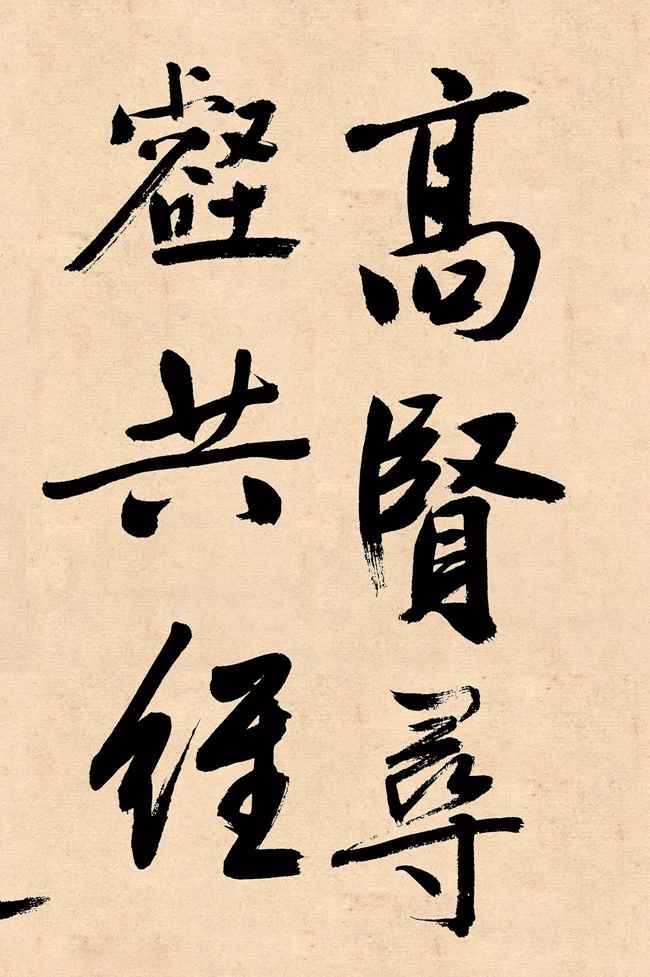 高賢尋
壑共經